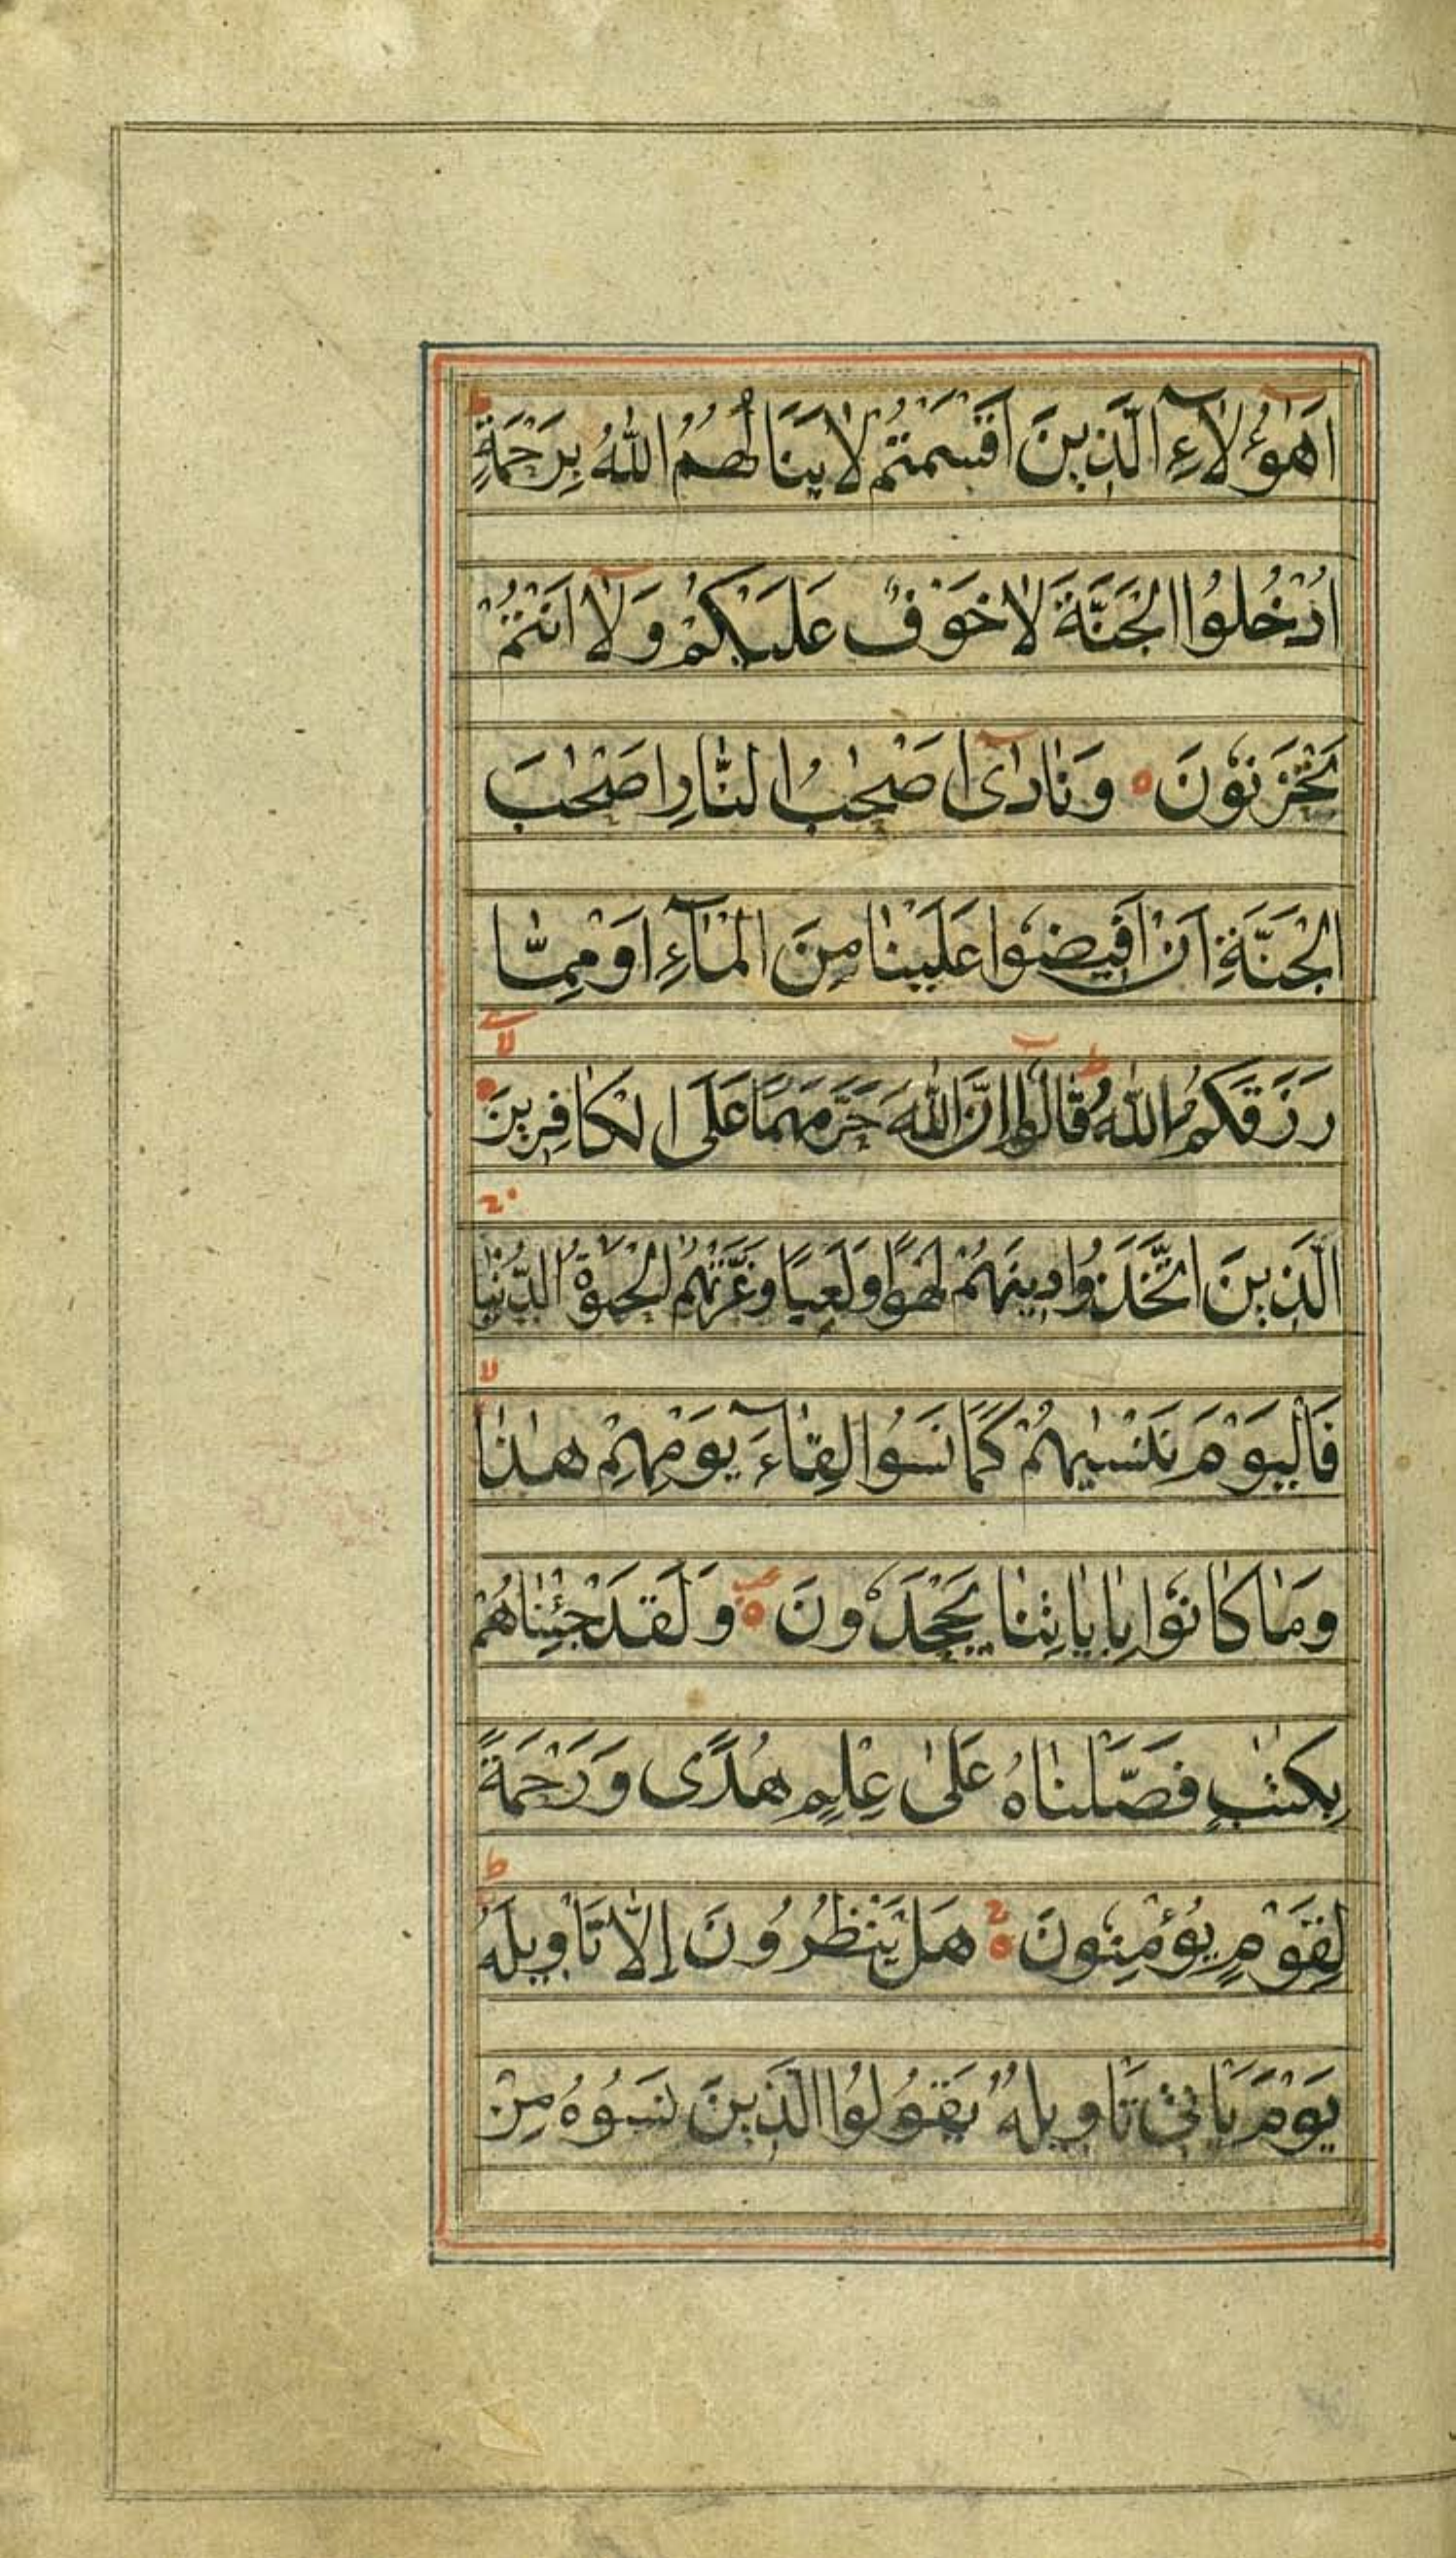 اَهٰۤؤُلَاۤءِ الَّذِينَ اَقْسَمْتُمْ لَا يَنَالُهُمُ اللّٰهُ بِرَحْمَةٍ ط
اُدْخُلُوا الْجَنَّةَ لَا خَوْفٌ عَلَيْكُمْ وَلَاۤ اَنْتُمْ
تَحْزَنُوْنَ ه وَنَادٰۤى اَصْحٰبُ النَّارِ اَصْحٰبَ
الْجَنَّةِ اَنْ اَفِيضُوْا عَلَيْنَا مِنَ الْمَاۤءِ اَوْ مِمَّا
رَزَقَكُمُ اللّٰهُ ط قَالُوْۤا اِنَّ اللّٰهَ حَرَّمَهُمَا عَلَى الْكَافِرِينَ لا
الَّذِينَ اتَّخَذُوا دِينَهُمْ لَهْوًا وَلَعِبًا وَغَرَّتْهُمُ الْحَيٰوةُ الدُّنْيَا ج
فَالْيَوْمَ نَنْسٰيهُمْ كَمَا نَسُوا لِقَاۤءَ يَوْمِهِمْ هٰذَا لا
وَمَا كَانُوْا بِاٰيَاتِنَا يَجْحَدُونَ ه وَلَقَدْ جِئْنَاهُمْ
بِكِتٰبٍ فَصَّلْنَاهُ عَلٰى عِلْمٍ هُدًى وَرَحْمَةً
لِقَوْمٍ يُؤْمِنُونَ ه هَلْ يَنْظُرُونَ اِلَّا تَاْوِيلَهُ ط
يَوْمَ يَاْتِىْ تَاْوِيلُهُ يَقُولُوا الَّذِينَ نَسُوهُ مِنْ